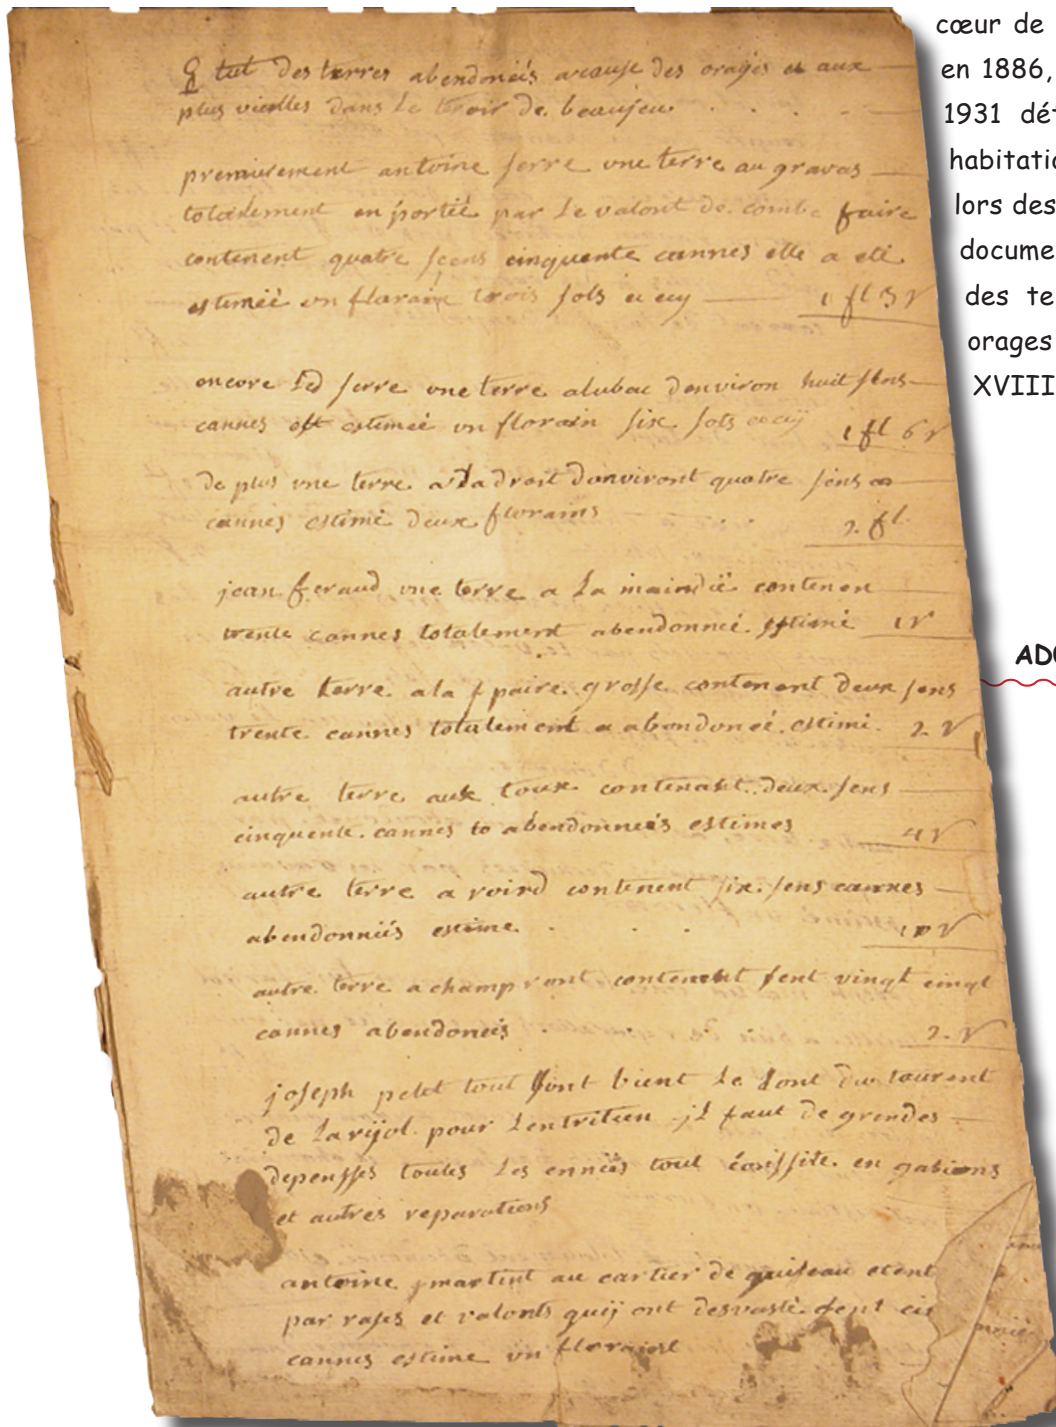 tut des terres abendoneés acause des orages et aux
plus vieilles dans Le teroir de beaujeu
premierement antoine serre une terre au gravas
totalement en portée par Le valont de combe faire
contenent quatre sçens cinquente cannes elle a eté
estimeé un florain trois sols 1 fl 3 s
encore Led serre une terre alubac denviron huit sens
cannes est estimeé un florain six sols 1 fl 6 s
De plus une terre a Ladroit Donviront quatre sens
cannes estimé Deux florains 2 fl
jean feraud une terre a La contenen
trente cannes totalement abendonneé estimé 1 s
autre terre a la paire grosse contenent Deux sens
trente cannes totalement a abandoneé estimé 2 s
autre terre aux toux contenant Deux sens
cinquente cannes to abendonneés estimes 4 s
autre terre a contenent six sens cannes
abendonneés estime 10 s
autre terre a contenent sent vingt cinqt
cannes abendoneés 2 s
joseph petit tout sont bient Le Lont Du tourent
de Larijol pour Lentretien jL faut De grendes
depensses toutes Les enneés tout en gabions
et autres reparations
antoine martint au cartier de
par rases et valonts quij ont desvasté sept
cannes estime un
cœur de
en 1886,
1931 dét
habitatio
lors des
docume
des te
orages
XVIII
AD